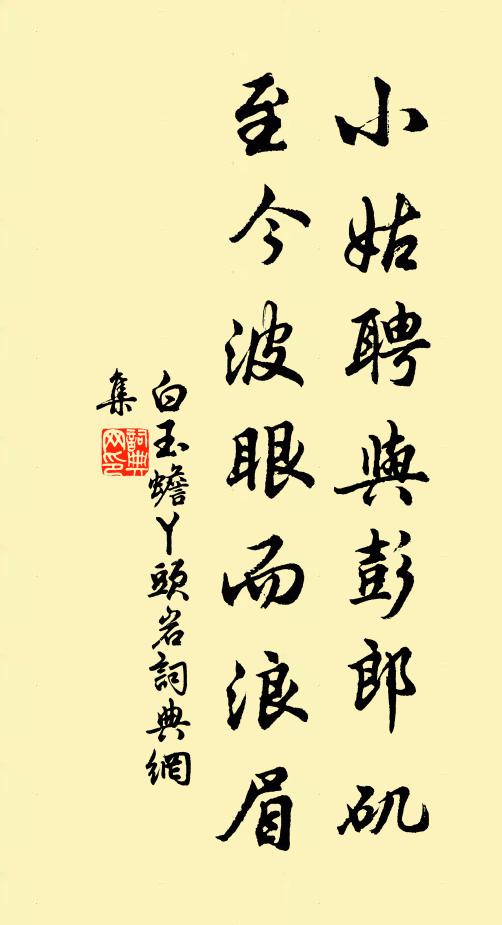 小姑聘與彭郎矶
至今波眼而浪眉
白玉蟾丫頭岩詞典網
集
詞典
网印